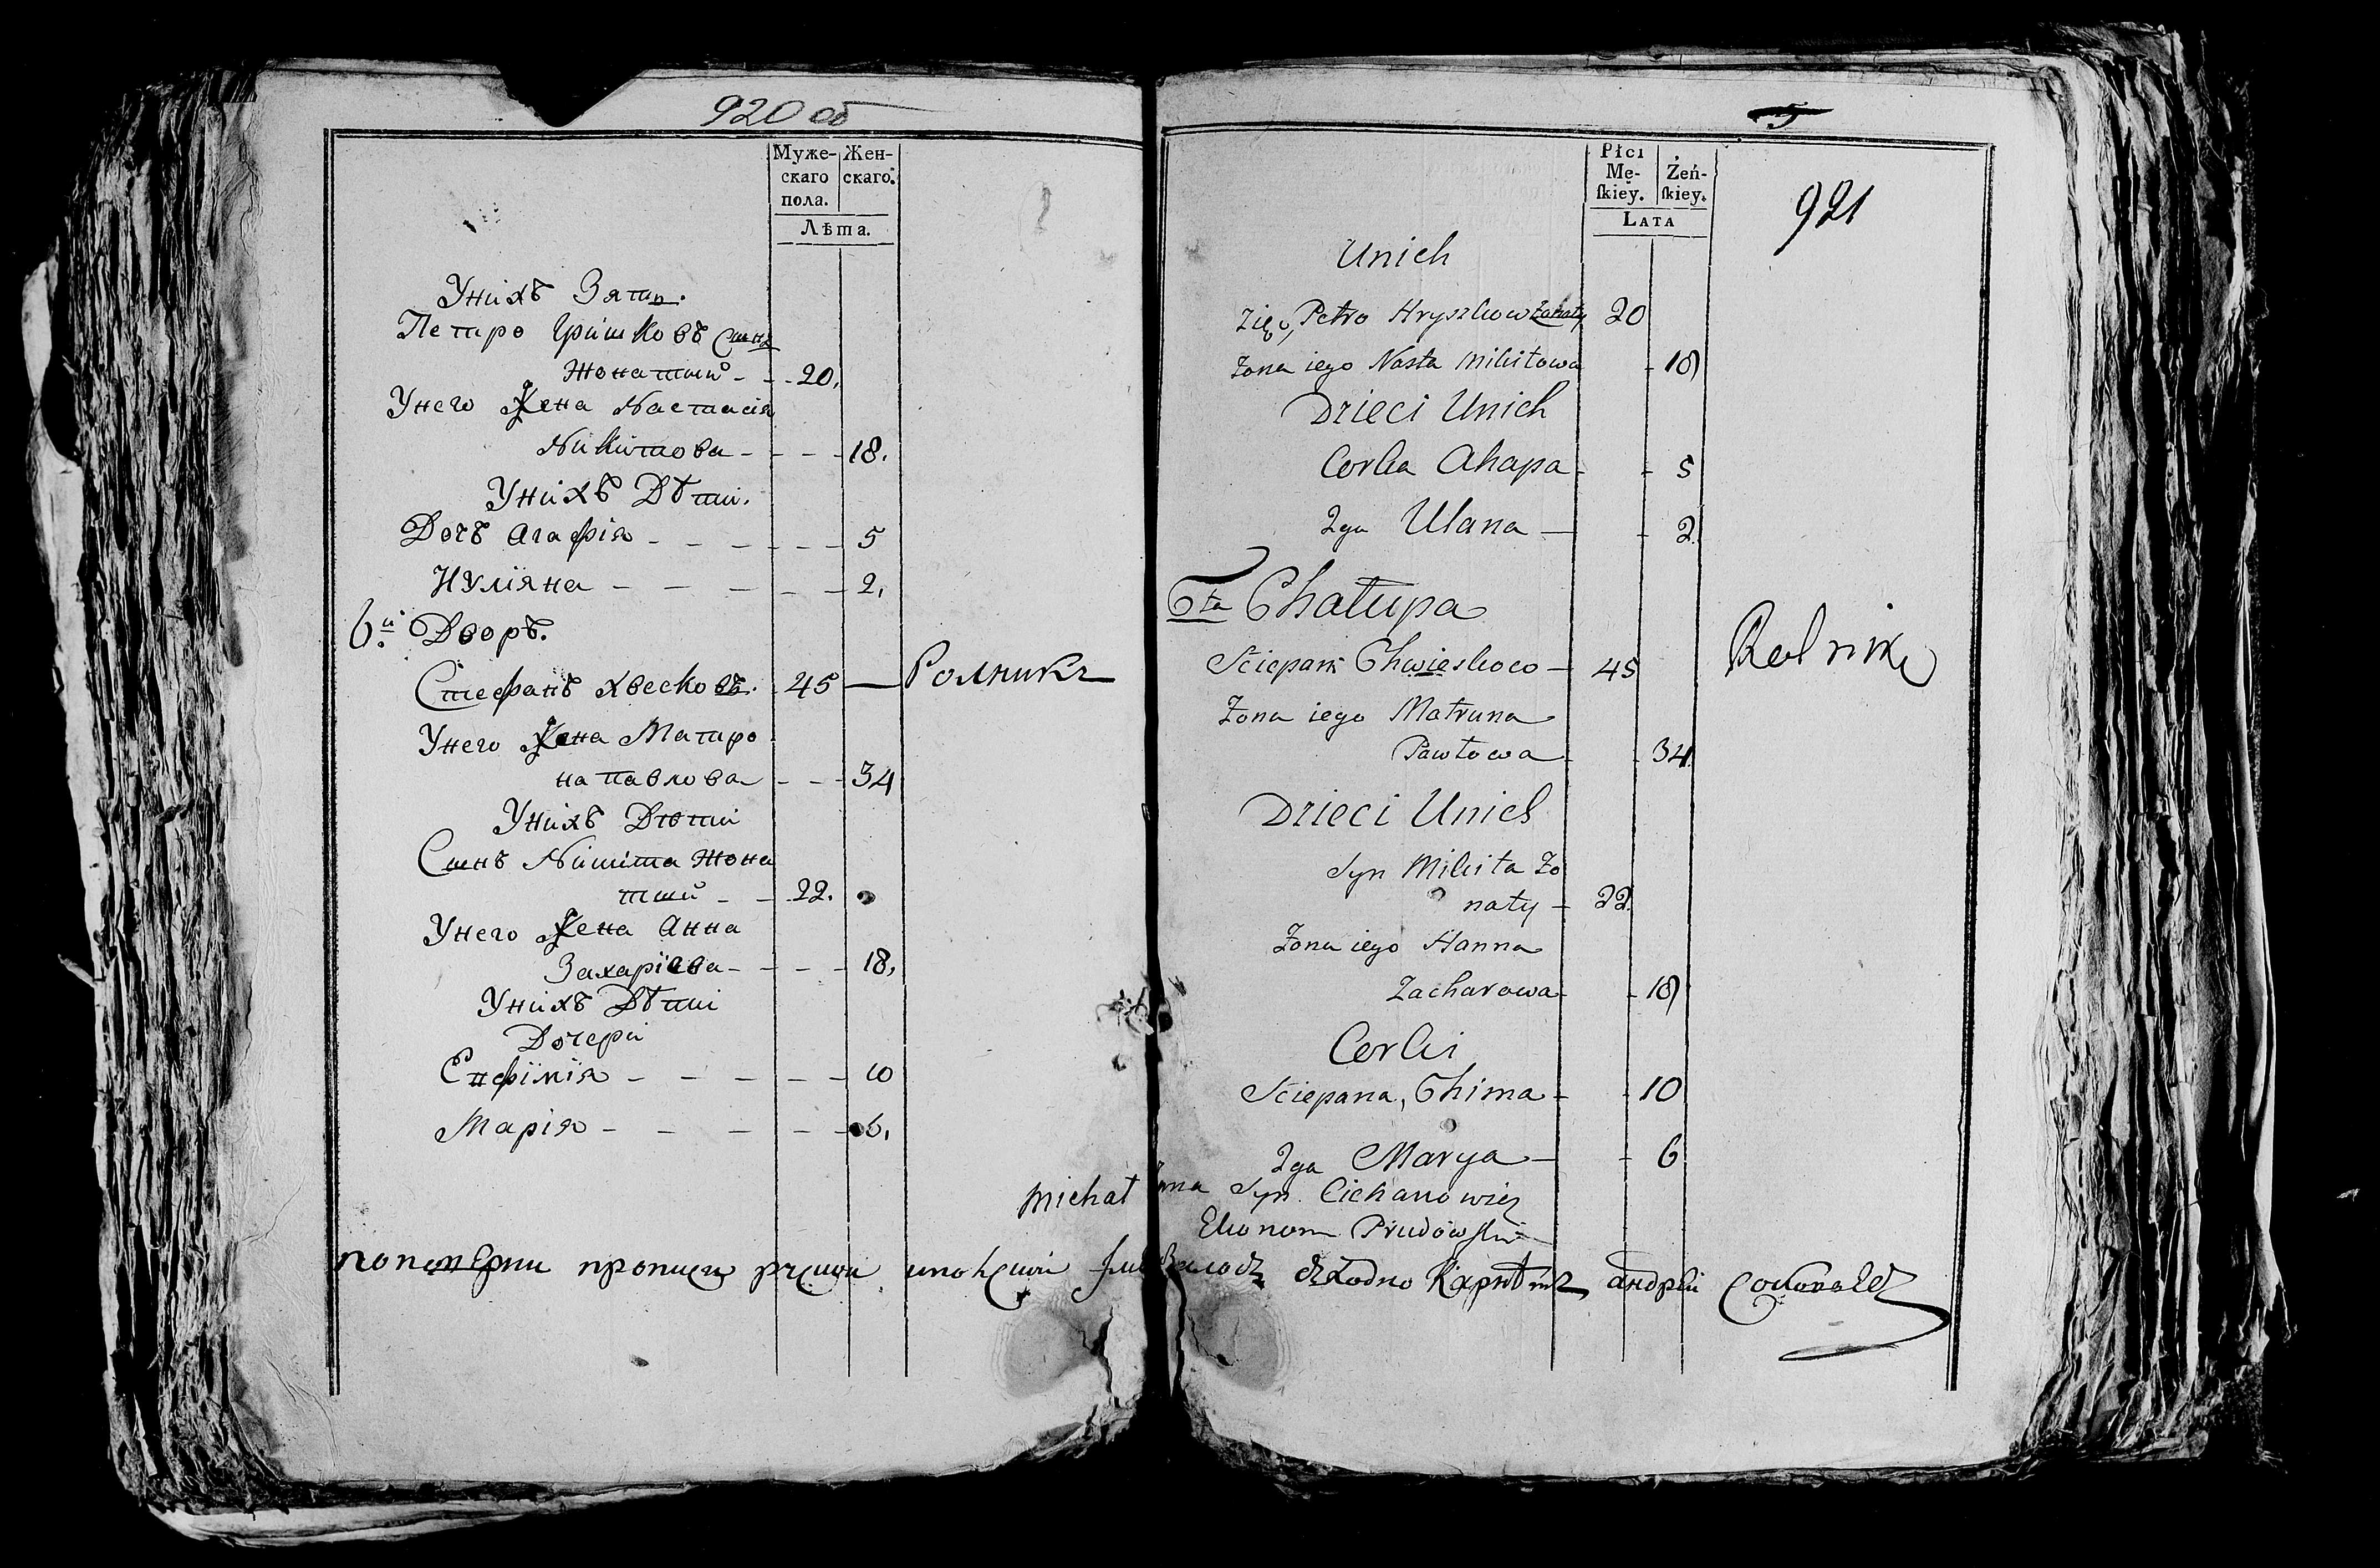 920 об
Муже-
скаго
пола.
Жен-
скаго.
Лѣта.
Унихъ Зять.
Петро Гришковъ Сынъ
Жонатый - - 20.
Унего Жена Настасія
Никитова - - - 18.
Унихъ Дѣти.
Дочъ Агафія - - - - - 5
Иуліяна - - - - - 2.
6й Дворъ.
Стефанъ Хвесковъ. - 45 — Ролникъ
Унего Жена Матро
на Павлова - - - 34
Унихъ Дѣти
Сынъ Никита Жона
тый - - 22.
Унего Жена Анна
Захаріева - - - 18.
Унихъ Дѣти
Дочери
Ефімія - - - - - 10
Марія - - - - - 6.
5
921
Płci
Mę-
ſkiey.
Żeń-
ſkiey.
Lata
Unich
Zięć, Petro Hryszkow Żonaty 20
Żona iego Nasta Mikitowa - 18
Dzieci Unich
Corka Ahapa - - 5
2ga Ulana — - 2.
6ta Chałupa
Sciepan Chwieskow — 45
Rolnik
Żona iego Matruna
Pawłowa - - 34.
Dzieci Unich
Syn Mikita Żo
naty - 22.
Żona iego Hanna
Zacharowa - - 18
Corki
Sciepana, Chima - - 10
2ga Marya — - 6
Michał Jana Syn Cichanowicz
Ekonom Prudowski
Андрѣй